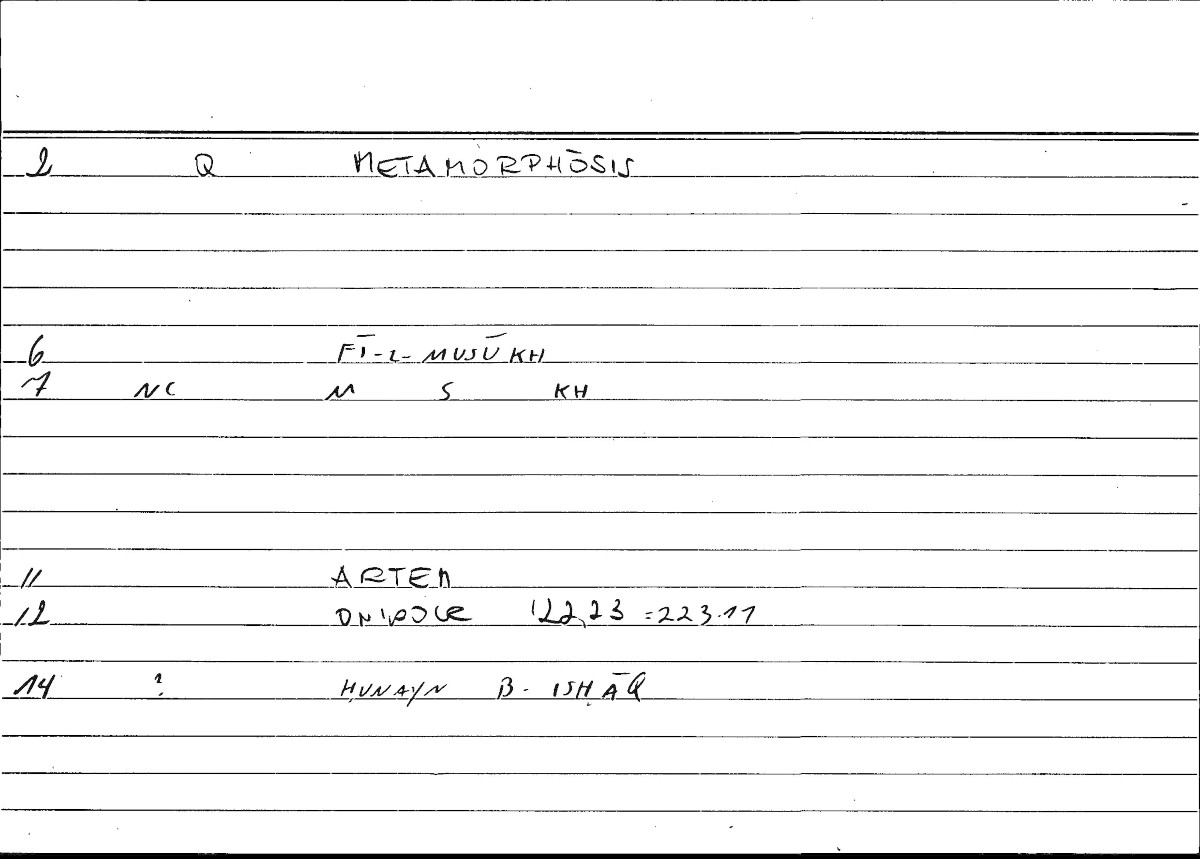 2 Q METAMÓRPHŌSIS
6 FĪ-L-MUSŪKH
7 NC M S KH
11 ARTEM
12 122,23 =223.11
14 ? ḤUNAYN B. ISḤĀQ